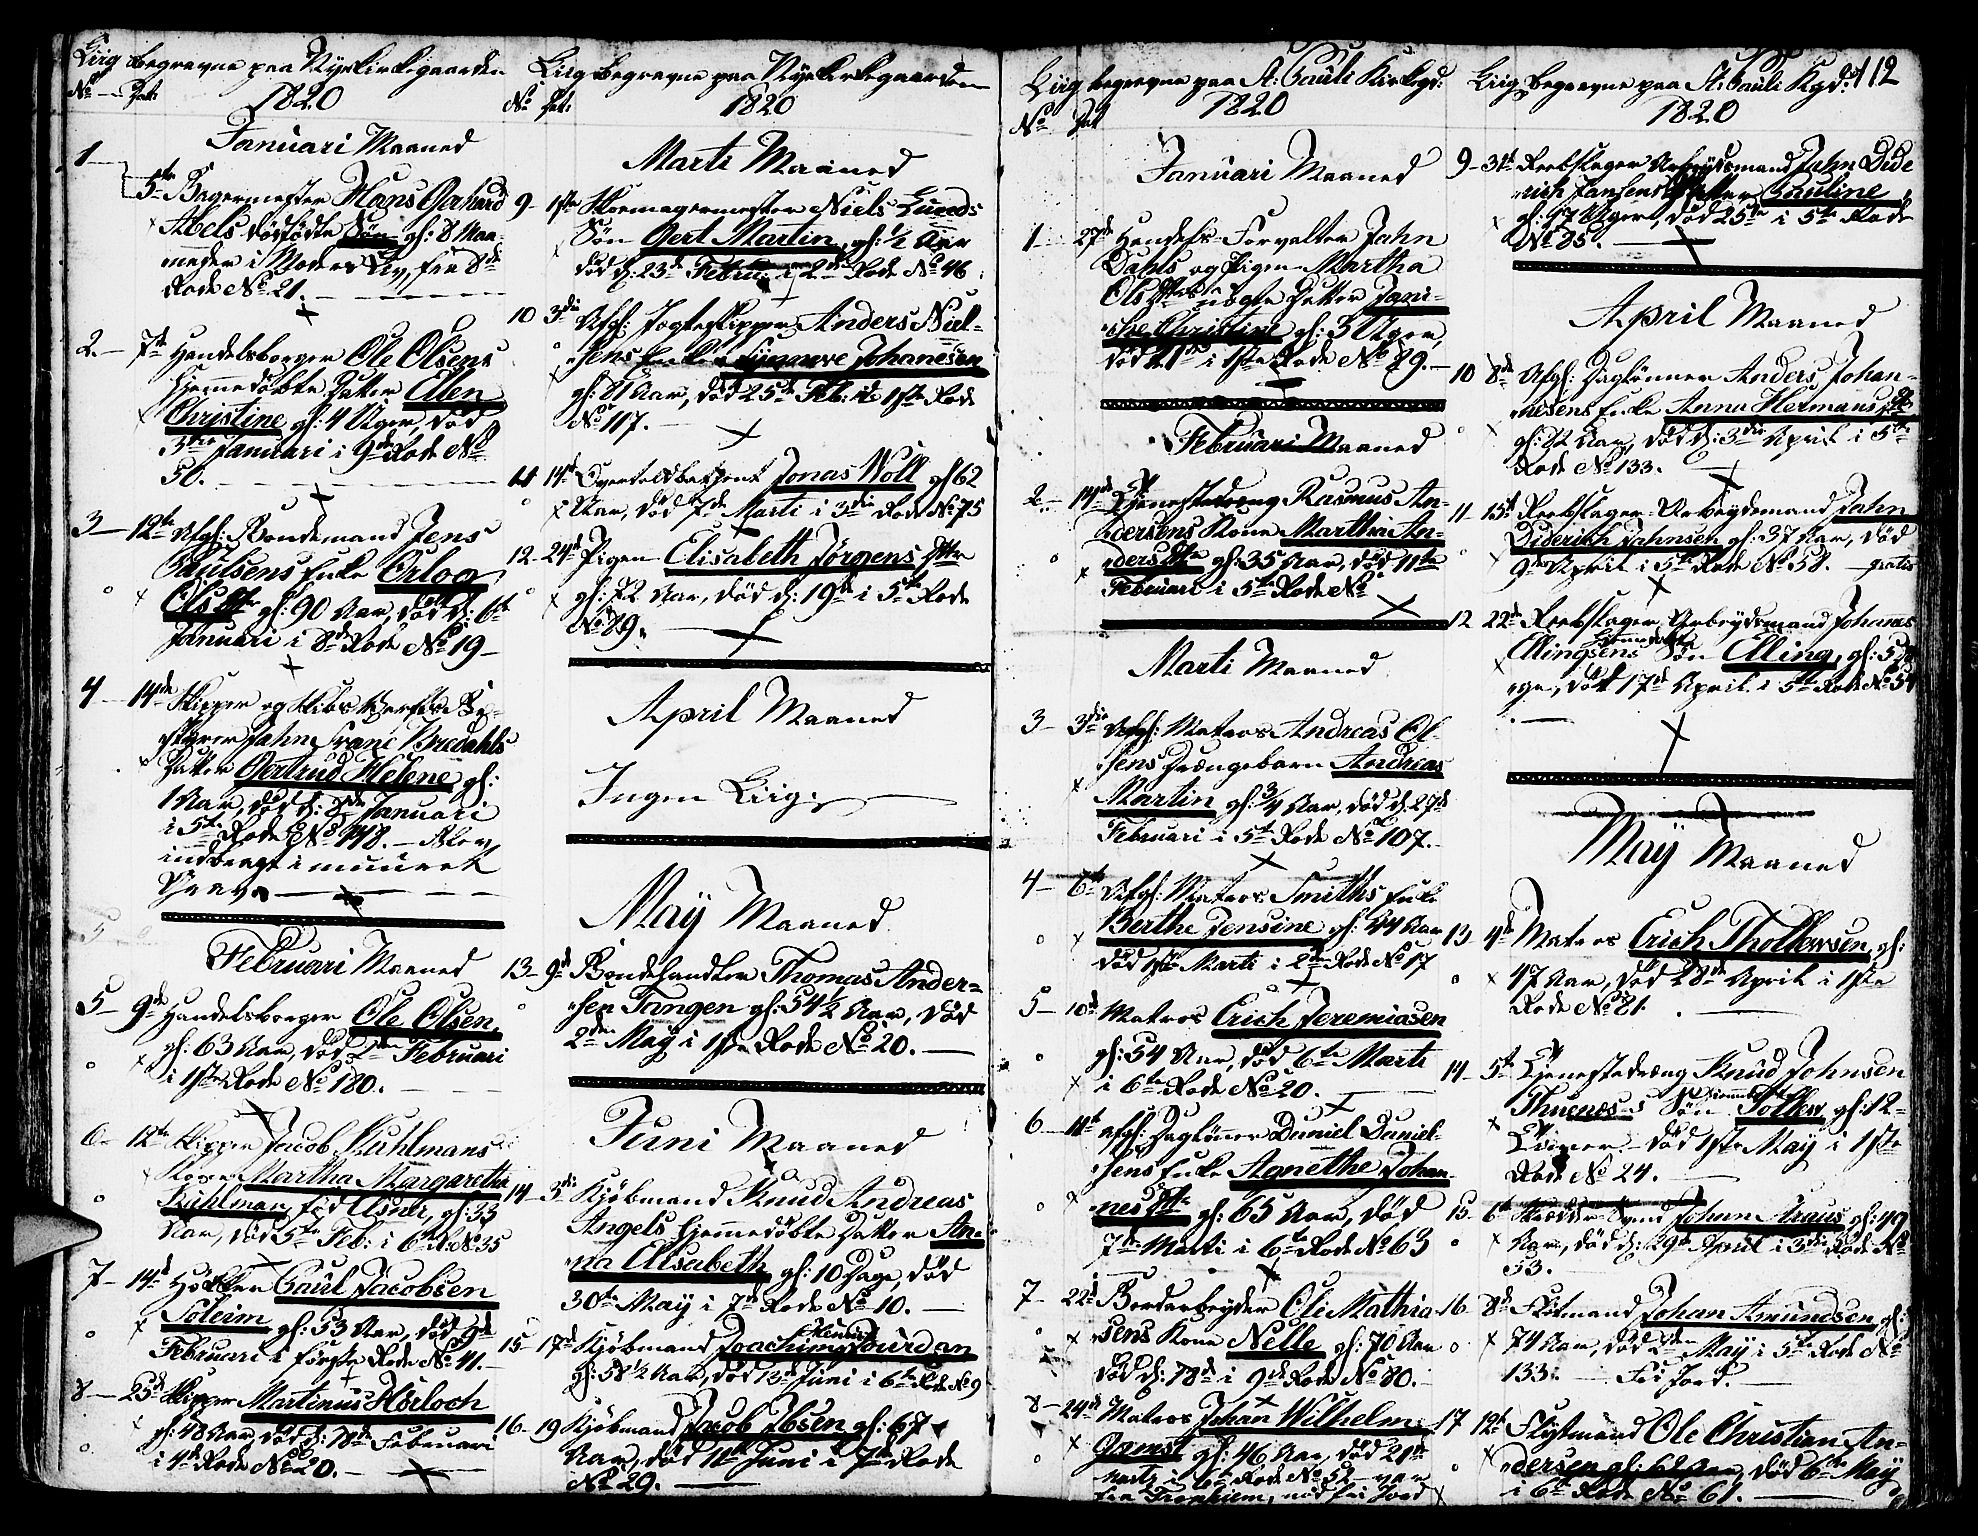 Liig begravne paa Nyekirkegaarden
No Dat:
1820
Januari Maaned
1
5te Bagermester Hans Gerhard
Abels dødfødte Søn, gl: 8 Maa-
neder i Moders Liv, fra 8de
Rode No 21.
2 7de Handelsborger Ole Olsens
hjemmedøbte Datter Elen
Christine gl: 4 Uger, død
3die Januari i 9de Rode No
50.
3 12te Afg: Bondemand Jens
Poulsens Enke
Ols Dtr gl: 90 Aar, død d: 6te
Januari i 8de Rode No 19
4 14de Skipper og Skibs
Jahn Bredahls
Datter Gertrud Helene gl:
1 Aar, død d: Januari
i 5te Rode No 148. Blev
indbragt i muuret
Grav
Februari Maaned
5 9de Handelsborger Ole Olsen,
gl: 63 Aar, død 2den Februari
i 1ste Rode No 180.
6 12te Skipper Jacob Kuhlmans
Kone Martha Margaretha
Kuhlman, fød gl: 33
Aar, død 5te Feb: i 6te R: No 35
7 14de Høkker Paul Jacobsen
Soleim gl: 53 Aar, død 9de
Februari i første Rode No 41.
8 25de Skipper Martinus Hørloch
gl: 48 Aar død d: 18de Februari
i 4de Rode No 20.
Liig begravne paa Nyekirkegaarden
No Dat:
1820
Marti Maaned
9 1ste Skomagermester Niels Lunds
Søn Gert Martin, gl: 1/2 Aar
død d: 23de Februari i 2den Rode No 46
10 3die Afg: Jagteskipper Anders Niel-
sens Enke Synneve Johanesen
gl: 81 Aar, død 25de Feb: i 1ste Rode
No 117.
11 14de Overtoldbetjent Jonas Woll gl 62
Aar, død 7de Marti i 3die Rode No 75
12 24de Pigen Elisabeth Jørgens Dttr
gl: 72 Aar, død d: 19de i 5te Rode
No 89.
April Maaned
Ingen Liig.
May Maaned
13 9de Bondehandler Thomas Ander-
sen Tangen gl: 54 1/2 Aar, død
2den May i 1ste Rode No 20.
Juni Maaned
14 3die Kjøbmand Knud Andreas
Angels hjemmedøbte Datter An-
na Elisabeth gl: 10 Dage, død
30te May i 7de Rode No 10.
15 17de Kjøbmand Joachim Jourdan
gl: 58 1/2 Aar, død 13de Juni i 6te Rode No 9
16 19 Kjøbmand Jacob Ibsen gl: 67
Aar, død 11te Juni i 7de Rode
No 29.
Liig begravne paa St: Pauli Kirkegd:
No Dat
1820
Januari Maaned
1 27de Handels-Forvalter Jahn
Dahls og Pigen Martha
Ols Dtrs uægte Datter Jani-
che Christine gl: 3 Uger,
død 21de i 1ste Rode No 89.
Februari Maaned
2 14de Tjenestedreng Rasmus An-
dersens Kone Martha An-
ders Dtr gl: 35 Aar, død 11te
Februari i 5te Rode No
Marti Maaned
3 3die Afg: Matros Andreas Ol-
sens Drængebarn Andreas
Martin gl: 3/4 Aar, død d: 27de
Februari i 5te Rode No 107.
4 6te Afg: Matros Smiths Enke
Berthe Jensine gl: 44 Aar
død 1ste Marti i 2den Rode No 17
5 10de Matros Erich Jeremiasen
gl: 54 Aar, død 6te Marti
i 6te Rode No 20.
6 11te afg: Dagløner Daniel Daniel-
sens Enke Agnethe Johan-
nes Dtr gl: 65 Aar, død
7de Marti i 6te Rode No 63
7 22de Bordarbeyder Ole Mathia
sens Kone Nelle gl: 70 Aar
død d: 18de i 9de Rode No 80.
8 24de Matros Johan Wilhelm
Gamst gl: 46 Aar, død 21de
Martz i 6te Rode No 52 var
fra Tronhiem, nød fri Jord
Liig begravne paa St: Pauli Kgd: 112
1820
9 31te Reebslager Arbeydsmand Jahn Dide
rich Jansens Datter Pauline
gl: 17 Uger, død 25de i 5te Rode
No 85.
April Maaned
10 8de Afg: Daglønner Anders Johan-
nesens Enke Anna Hermans Dtr
gl: 82 Aar, død d: 3die April i 5te
Rode No 133.
11 15de Reebslager-Arbeydsmand Jahn
Diderich Jahnsen gl: 37 Aar, død
9de April i 5te Rode No 58. gratis
12 22de Reebslager Arbeydsmand Johannes
Ellingsens hjemmedøbte Søn Elling, gl: 5 Da
ge, død 17de April i 5te Rode No 54
May Maaned
13 4de Matros Erich Thollevsen, gl:
47 Aar, død 28de April i 1ste
Rode No 21.
14 5te Tjenestedreng Knud Johnsen
Thuenes's hjemmedøbte Søn Tollev gl: 12
Timer død 1ste May i 1ste
Rode No 24.
15 6te Skrædder Svend Johan Kraus gl: 49
Aar, død d: 29de April i 3die Rode No
53.
16 8de Johan Amundsen gl:
74 Aar, død 2den May i 5te Rode No
133. Fri Jord.
17 12te Flygtmand Ole Christian An-
dersen gl: 62 Aar, død 6te May
i 6te Rode No 61.